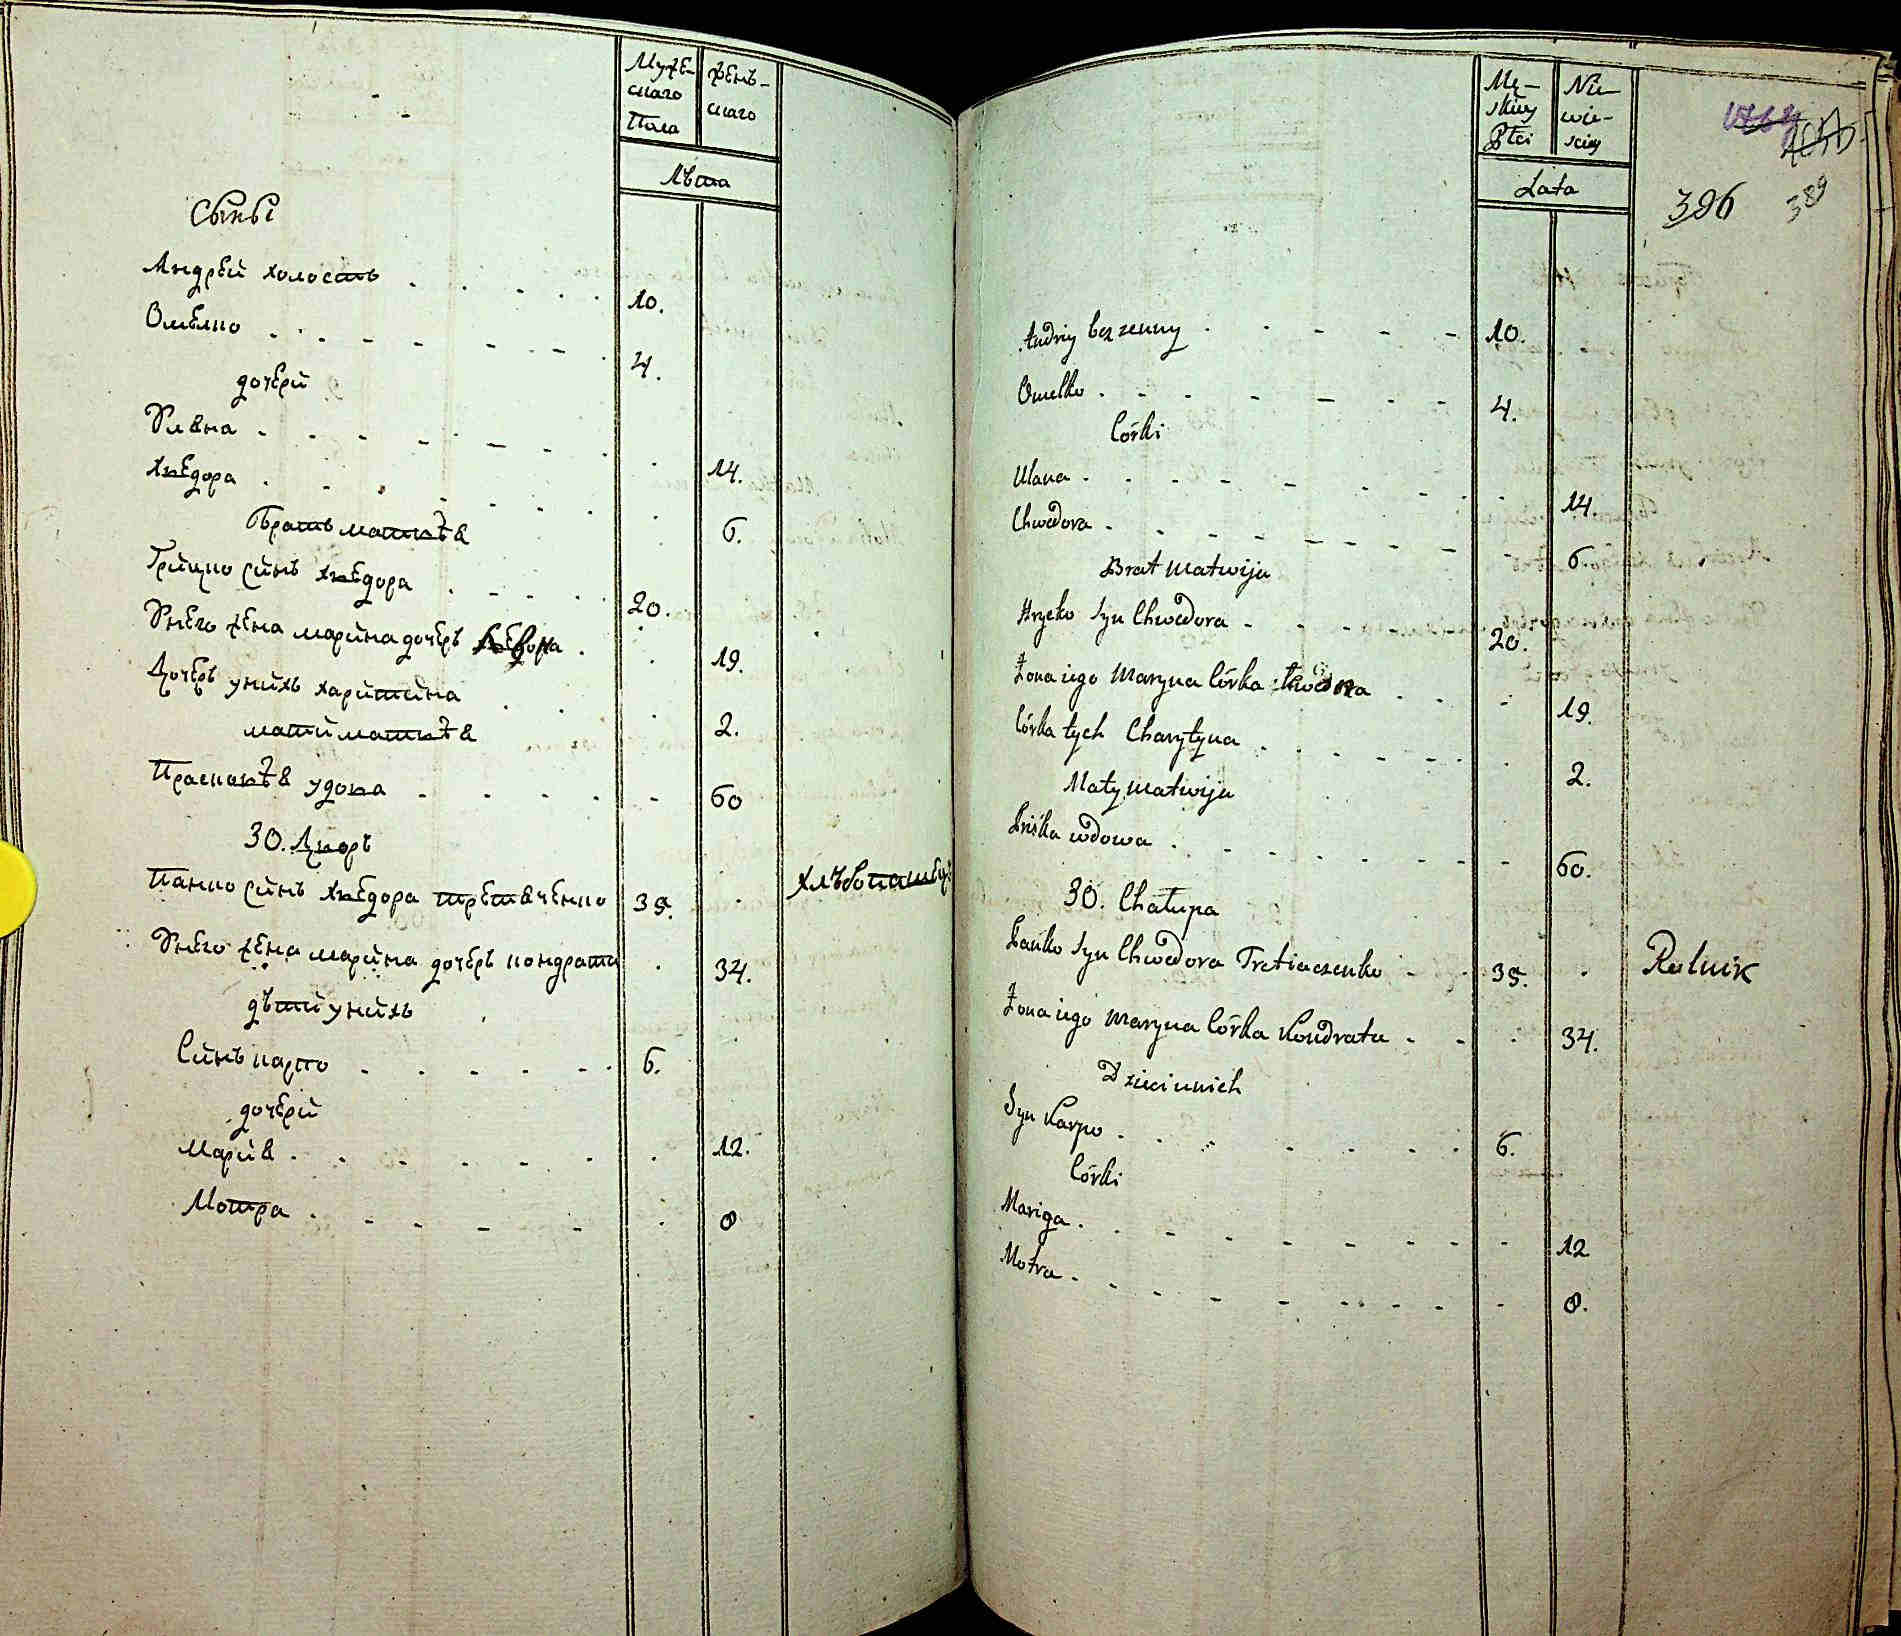 Муже-
скаго
Пола
Женъ-
скаго
Лѣта
Сыны
Андрей холостъ 10.
Омелко 4.
дочери
Уляна 14.
Хведора 6.
Братъ матвѣя
Грицко синъ хведора 20.
Унего жена марина дочеръ 19.
Дочеръ унихъ харитина 2.
мати матвѣя
Прасковѣя удова 60
30. Дворъ
Панко синъ хведора третяченко 35. хлѣбопашец
Унего жена марина дочеръ кондрата 34.
дѣти унихъ
Синъ карпо 6.
дочери
Мария 12.
Мотра 8
Mę-
skiey
Płci
Nie-
wie-
sciey
Lata
396 389
Andriy bezzenny 10.
Omelko 4.
Córki
Ulana 14.
Chwedora 6.
Brat Matwija
Hrycko syn Chwedora 20.
Żona iego Maryna Córka 19.
Córka tych Charytyna 2.
Maty Matwiju
wdowa 60.
30. Chałupa
Panko syn Chwedora Tretiaczenko 35. Rolnik
Żona iego Maryna Córka Kondrata 34.
Dzieci unich
Syn Karpo 6.
Córki
Mariya 12
Motra 8.